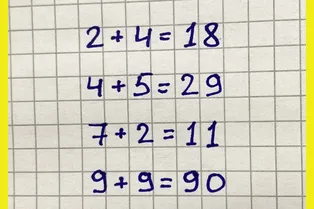 2+4=18
4+5=29
7+2=11
9+9=90